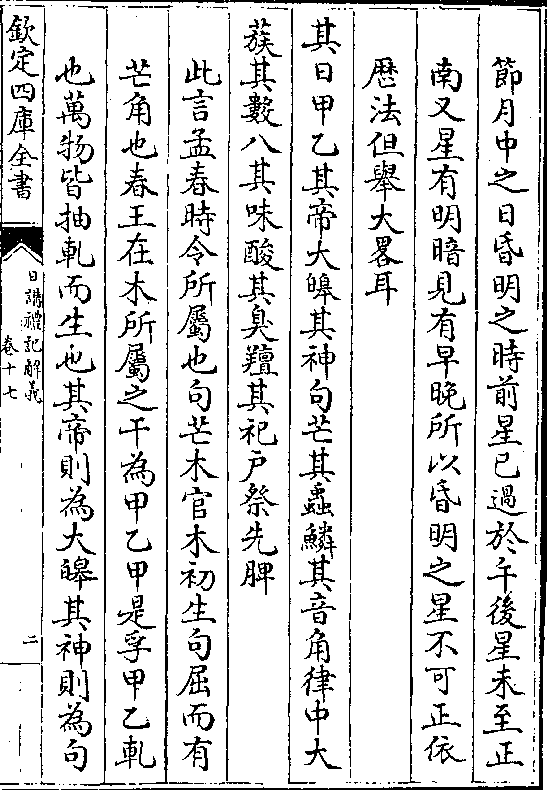 節月中之日昏明之時前星已過於午後星未至正
南又星有明暗見有早晚所以昏明之星不可正依
厯法但舉大畧耳
其日甲乙其帝大皞其神句芒其蟲鱗其音角律中大
蔟其數八其味酸其臭羶其祀户祭先脾
此言孟春時令所屬也句芒木官木初生句屈而有
芒角也春王在木所屬之干為甲乙甲是孚甲乙軋
也萬物皆抽軋而生也其帝則為大皞其神則為句
欽定四庫全書
日講禮記解義
卷十七
二